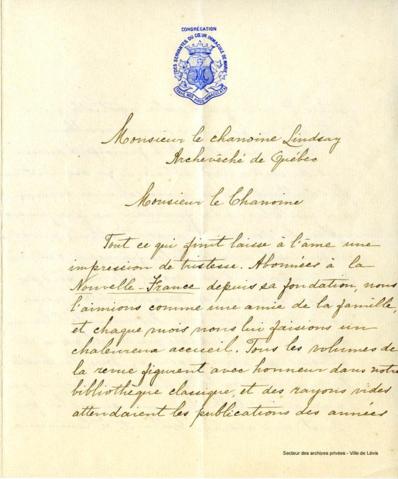 CONGRÉGATION
DES SERVANTES DU CŒUR IMMACULÉ DE MARIE
Monsieur le chanoine Lindsay
Archevêché de Québec
Monsieur le Chanoine
Tout ce qui finit laisse à l'âme une
impression de tristesse. Abonnées à la
Nouvelle-France depuis sa fondation, nous
l'aimions comme une amie de la famille,
et chaque mois nous lui faisions un
chaleureux accueil. Tous les volumes de
la revue figurent avec honneur dans notre
bibliothèque classique, et des rayons vides
attendaient les publications des années
Secteur des archives privées - Ville de Lévis